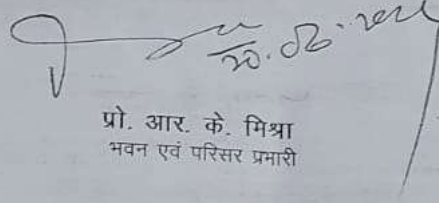 20.06.2024
प्रो. आर. के. मिश्रा
भवन एवं परिसर प्रभारी